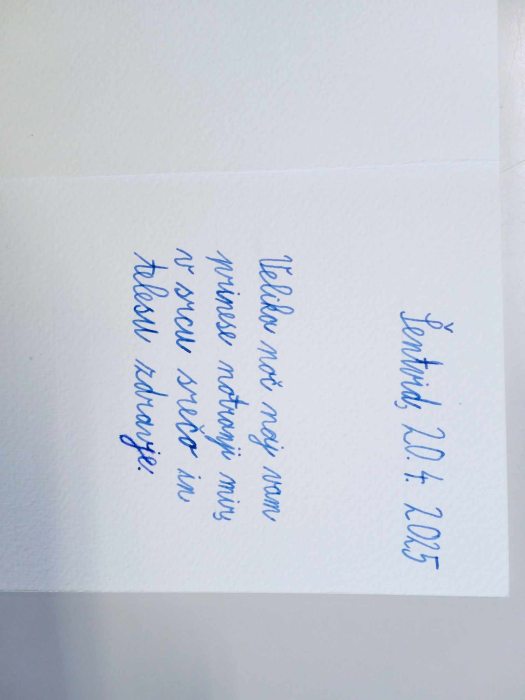 Šentvid, 20. 4. 2025
Velika noč naj vam
prinese notranji mir,
v srcu srečo in
telesu zdravje.